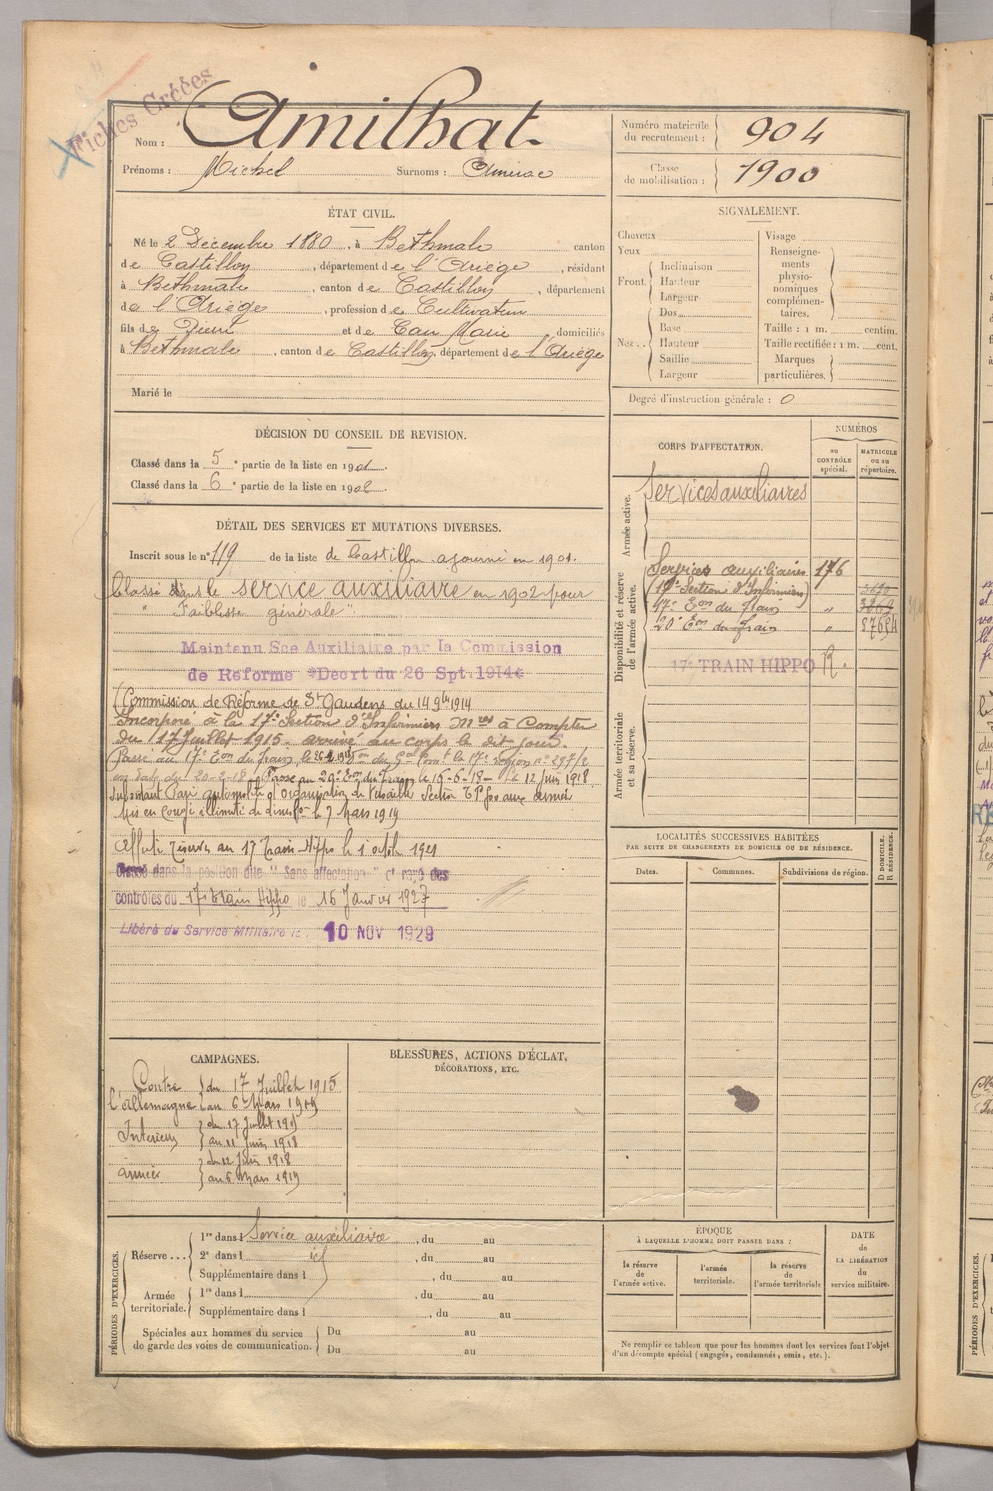 Fiches Créées
Nom : Amilhat
Prénoms : Michel Surnoms :
Numéro matricule du recrutement : 904
Classe de mobilisation : 1900
ÉTAT CIVIL.
Né le 2 Décembre 1880, à Bethmale canton
de Castillon, département de l'Ariège, résidant
à Bethmale, canton de Castillon, département
de l'Ariège, profession de Cultivateur
fils de Pierre et de Cau Marie domiciliés
à Bethmale, canton de Castillon, département de l'Ariège
Marié le
SIGNALEMENT.
Cheveux
Yeux
Front.
Inclinaison
Hauteur
Largeur
Nez..
Dos
Base
Hauteur
Saillie
Largeur
Visage
Renseignements physionomiques complémentaires.
Taille : 1 m. centim.
Taille rectifiée : 1 m. cent.
Marques particulières.
Degré d'instruction générale : 0
DÉCISION DU CONSEIL DE REVISION.
Classé dans la 5e partie de la liste en 1901.
Classé dans la 6e partie de la liste en 1902.
DÉTAIL DES SERVICES ET MUTATIONS DIVERSES.
Inscrit sous le n° 119 de la liste de Castillon ajourné en 1901.
Classé dans le service auxiliaire en 1902 pour
"Faiblesse générale".
Maintenu Sce Auxiliaire par la Commission
de Reforme "Decrt du 26 Spt.1914"
(Commission de Réforme de St Gaudens du 14 9bre 1914
Incorporé à la 17e Section d'Infirmiers Mres à Compter
du 17 Juillet 1915. arrivé au corps le dit jour.
Passé au 17e Eon du train le du Gal Comt la 17e région n° 297/2
en date du 20-2-18. Passé au 20e Eon du Train le 16-6-18 le 12 juin 1918
Parc automobile d'organisation de Versailles Section aux armées
Mis en congé illimité de le 7 Mars 1919
Affecté réserve au 17 Train Hippo le 1 octobre 1921
Classé dans la position dite "Sans affectation" et rayé des
contrôles du 17e train Hippo le 16 Janvier 1927
Libéré du Service Militaire le 10 NOV 1929
CORPS D'AFFECTATION.
NUMÉROS
au CONTRÔLE spécial.
MATRICULE ou au répertoire.
Armée active.
Services auxiliaires
Disponibilité et réserve de l'armée active.
Services auxiliaires 176
17e Section d'Infirmiers
17e Eon du train "
20e Eon du train "
17e TRAIN HIPPO R.
Armée territoriale et sa réserve.
LOCALITÉS SUCCESSIVES HABITÉES
PAR SUITE DE CHANGEMENTS DE DOMICILE OU DE RÉSIDENCE.
Dates.
Communes.
Subdivisions de région.
D DOMICILE.
R RÉSIDENCE.
CAMPAGNES.
Contre l'Allemagne
du 17 Juillet 1915
au 6 Mars 1919
Intérieur
du 17 Juillet 1915
au 11 Juin 1918
Armées
du 12 Juin 1918
au 6 Mars 1919
BLESSURES, ACTIONS D'ÉCLAT,
DÉCORATIONS, ETC.
PÉRIODES D'EXERCICES.
Réserve...
1re dans l Service auxiliaire, du au
2e dans l id, du au
Supplémentaire dans l, du au
Armée territoriale.
1re dans l, du au
Supplémentaire dans l, du au
Spéciales aux hommes du service
de garde des voies de communication.
Du au
Du au
ÉPOQUE
À LAQUELLE L'HOMME DOIT PASSER DANS :
la réserve de l'armée active.
l'armée territoriale.
la réserve de l'armée territoriale
DATE de LA LIBÉRATION du service militaire.
Ne remplir ce tableau que pour les hommes dont les services font l'objet
d'un décompte spécial (engagés, condamnés, omis, etc.).
PÉRIODES D'EXERCICES.